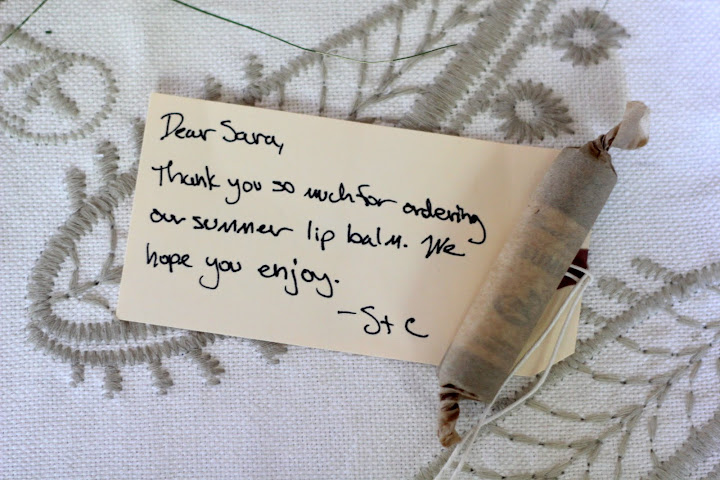 Dear Sara,
Thank you so much for ordering
our summer lip balm. We
hope you enjoy.
- S + C